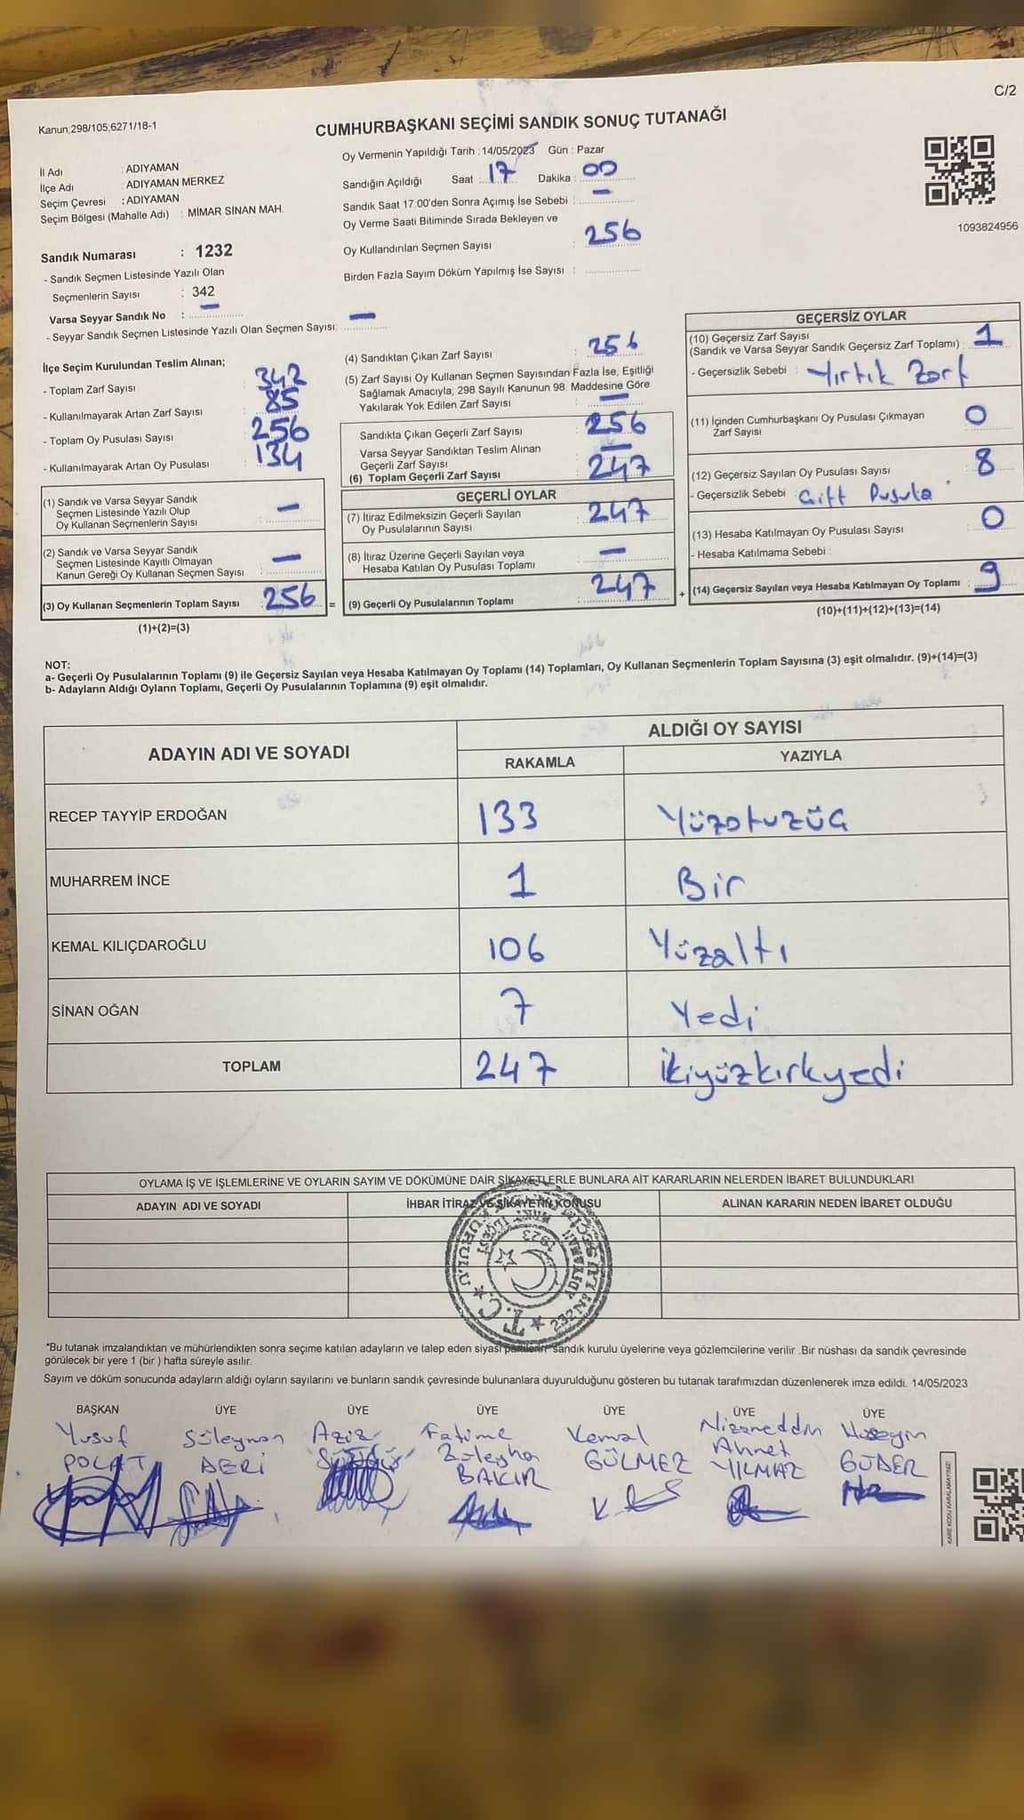 C/2
Kanun;298/105;6271/18-1
CUMHURBAŞKANI SEÇİMİ SANDIK SONUÇ TUTANAĞI
İl Adı : ADIYAMAN
İlçe Adı : ADIYAMAN MERKEZ
Seçim Çevresi : ADIYAMAN
Seçim Bölgesi (Mahalle Adı) : MİMAR SİNAN MAH.
Oy Vermenin Yapıldığı Tarih : 14/05/2023 Gün : Pazar
Sandığın Açıldığı Saat : 17 Dakika : 00
Sandık Saat 17:00'den Sonra Açımış İse Sebebi : —
Oy Verme Saati Bitiminde Sırada Bekleyen ve
Oy Kullandırılan Seçmen Sayısı : 256
Birden Fazla Sayım Döküm Yapılmış İse Sayısı :
1093824956
Sandık Numarası : 1232
- Sandık Seçmen Listesinde Yazılı Olan
Seçmenlerin Sayısı : 342
Varsa Seyyar Sandık No : —
- Seyyar Sandık Seçmen Listesinde Yazılı Olan Seçmen Sayısı: —
İlçe Seçim Kurulundan Teslim Alınan;
- Toplam Zarf Sayısı : 342
- Kullanılmayarak Artan Zarf Sayısı : 85
- Toplam Oy Pusulası Sayısı : 256
- Kullanılmayarak Artan Oy Pusulası : 134
(1) Sandık ve Varsa Seyyar Sandık
Seçmen Listesinde Yazılı Olup
Oy Kullanan Seçmenlerin Sayısı : —
(2) Sandık ve Varsa Seyyar Sandık
Seçmen Listesinde Kayıtlı Olmayan
Kanun Gereği Oy Kullanan Seçmen Sayısı : —
(3) Oy Kullanan Seçmenlerin Toplam Sayısı : 256 =
(1)+(2)=(3)
(4) Sandıktan Çıkan Zarf Sayısı : 256
(5) Zarf Sayısı Oy Kullanan Seçmen Sayısından Fazla İse, Eşitliği
Sağlamak Amacıyla; 298 Sayılı Kanunun 98. Maddesine Göre
Yakılarak Yok Edilen Zarf Sayısı : —
Sandıkta Çıkan Geçerli Zarf Sayısı : 256
Varsa Seyyar Sandıktan Teslim Alınan
Geçerli Zarf Sayısı : —
(6) Toplam Geçerli Zarf Sayısı : 247
GEÇERLİ OYLAR
(7) İtiraz Edilmeksizin Geçerli Sayılan
Oy Pusulalarının Sayısı : 247
(8) İtiraz Üzerine Geçerli Sayılan veya
Hesaba Katılan Oy Pusulası Toplamı : —
(9) Geçerli Oy Pusulalarının Toplamı : 247 +
GEÇERSİZ OYLAR
(10) Geçersiz Zarf Sayısı
(Sandık ve Varsa Seyyar Sandık Geçersiz Zarf Toplamı) : 1
- Geçersizlik Sebebi : Yırtık Zarf
(11) İçinden Cumhurbaşkanı Oy Pusulası Çıkmayan
Zarf Sayısı 0
(12) Geçersiz Sayılan Oy Pusulası Sayısı 8
- Geçersizlik Sebebi Çift Pusula
(13) Hesaba Katılmayan Oy Pusulası Sayısı 0
- Hesaba Katılmama Sebebi :
(14) Geçersiz Sayılan veya Hesaba Katılmayan Oy Toplamı : 9
(10)+(11)+(12)+(13)=(14)
NOT:
a- Geçerli Oy Pusulalarının Toplamı (9) ile Geçersiz Sayılan veya Hesaba Katılmayan Oy Toplamı (14) Toplamları, Oy Kullanan Seçmenlerin Toplam Sayısına (3) eşit olmalıdır. (9)+(14)=(3)
b- Adayların Aldığı Oyların Toplamı, Geçerli Oy Pusulalarının Toplamına (9) eşit olmalıdır.
ADAYIN ADI VE SOYADI
ALDIĞI OY SAYISI
RAKAMLA YAZIYLA
RECEP TAYYİP ERDOĞAN 133 Yüzotuzüç
MUHARREM İNCE 1 Bir
KEMAL KILIÇDAROĞLU 106 Yüzaltı
SİNAN OĞAN 7 Yedi
TOPLAM 247 İkiyüzkırkyedi
OYLAMA İŞ VE İŞLEMLERİNE VE OYLARIN SAYIM VE DÖKÜMÜNE DAİR ŞİKAYETLERLE BUNLARA AİT KARARLARIN NELERDEN İBARET BULUNDUKLARI
ADAYIN ADI VE SOYADI İHBAR İTİRAZ VE ŞİKAYETİN KONUSU ALINAN KARARIN NEDEN İBARET OLDUĞU
T.C.
1923
*Bu tutanak imzalandıktan ve mühürlendikten sonra seçime katılan adayların ve talep eden siyasi partilerin sandık kurulu üyelerine veya gözlemcilerine verilir .Bir nüshası da sandık çevresinde
görülecek bir yere 1 (bir ) hafta süreyle asılır.
Sayım ve döküm sonucunda adayların aldığı oyların sayılarını ve bunların sandık çevresinde bulunanlara duyurulduğunu gösteren bu tutanak tarafımızdan düzenlenerek imza edildi. 14/05/2023
BAŞKAN ÜYE ÜYE ÜYE ÜYE ÜYE ÜYE
Yusuf Süleyman Aziz Fatime Kemal Nizameddin Hüseyin
POLAT DERİ Züleyha GÜLMEZ Ahmet GÜDER
BAKIR YILMAZ
KARE KODU KARALAMAYINIZ!